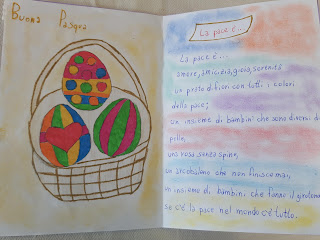 Buona Pasqua
La pace è...
La pace è...
amore, amicizia, gioia, serenità
un prato di fiori con tutti i colori
della pace;
un insieme di bambini che sono diversi di
pelle,
una rosa senza spine,
un arcobaleno che non finisce mai,
un insieme di bambini che fanno il girotondo
se c'è la pace nel mondo c'è tutto.